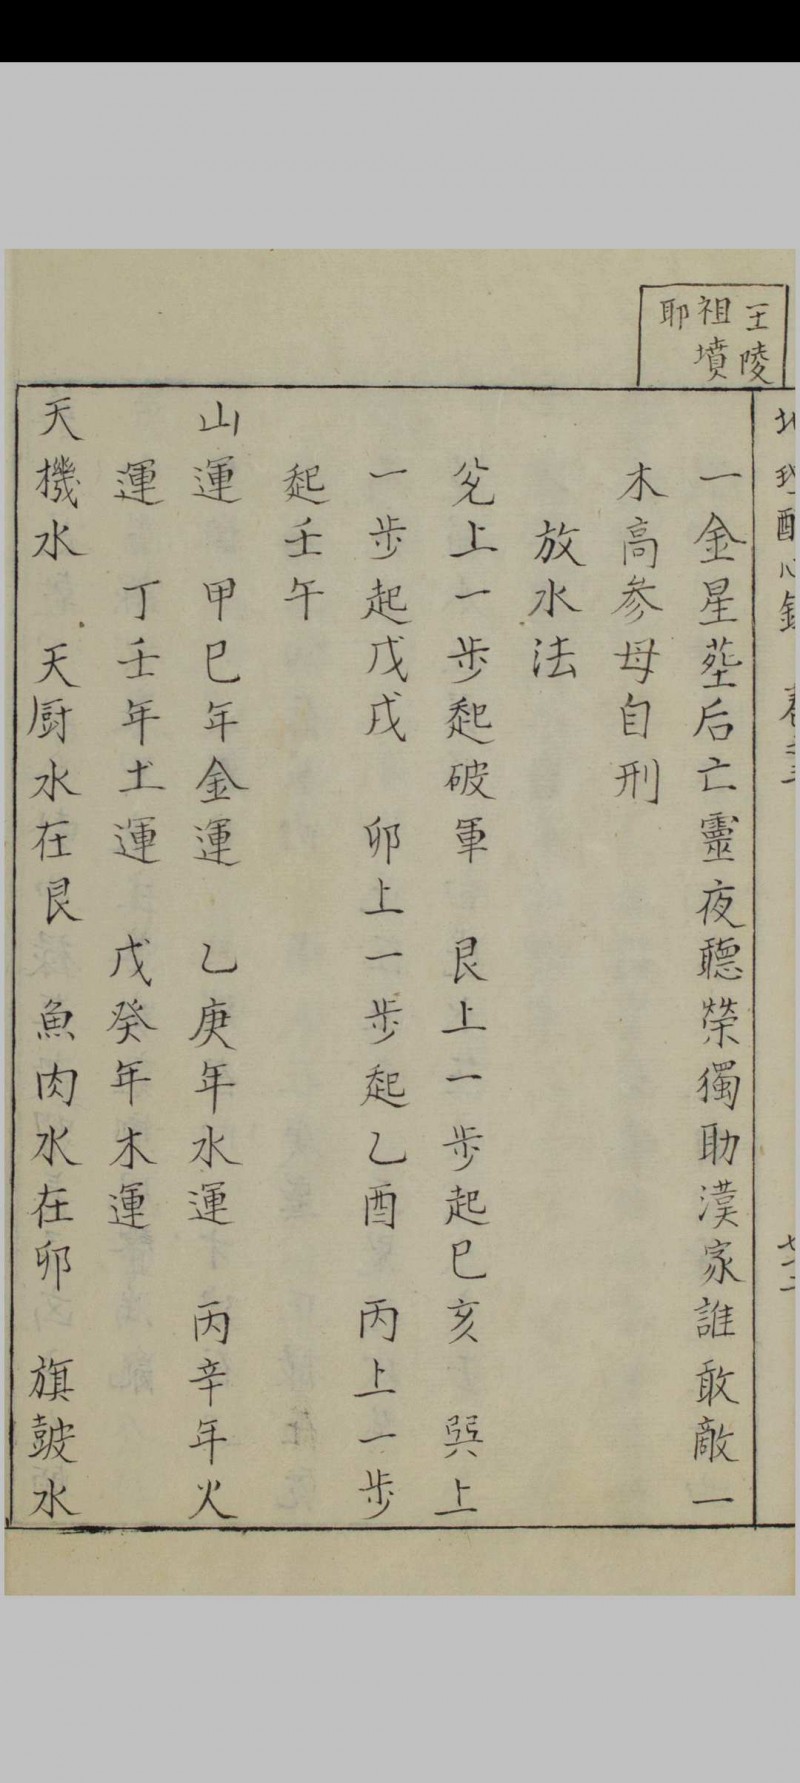 王陵
祖墳
耶
一金星塟后亡靈夜聽榮獨助漢家誰敢敵一
木高參母自刑
放水法
兊上一步起破軍　艮上一步起巳亥　巽上
一步起戊戌　卯上一步起乙酉　丙上一步
起壬午
山運　甲巳年金運　乙庚年水運　丙辛年火
運　丁壬年土運　戊癸年木運
天機水　天厨水在艮　魚肉水在卯　旗皷水